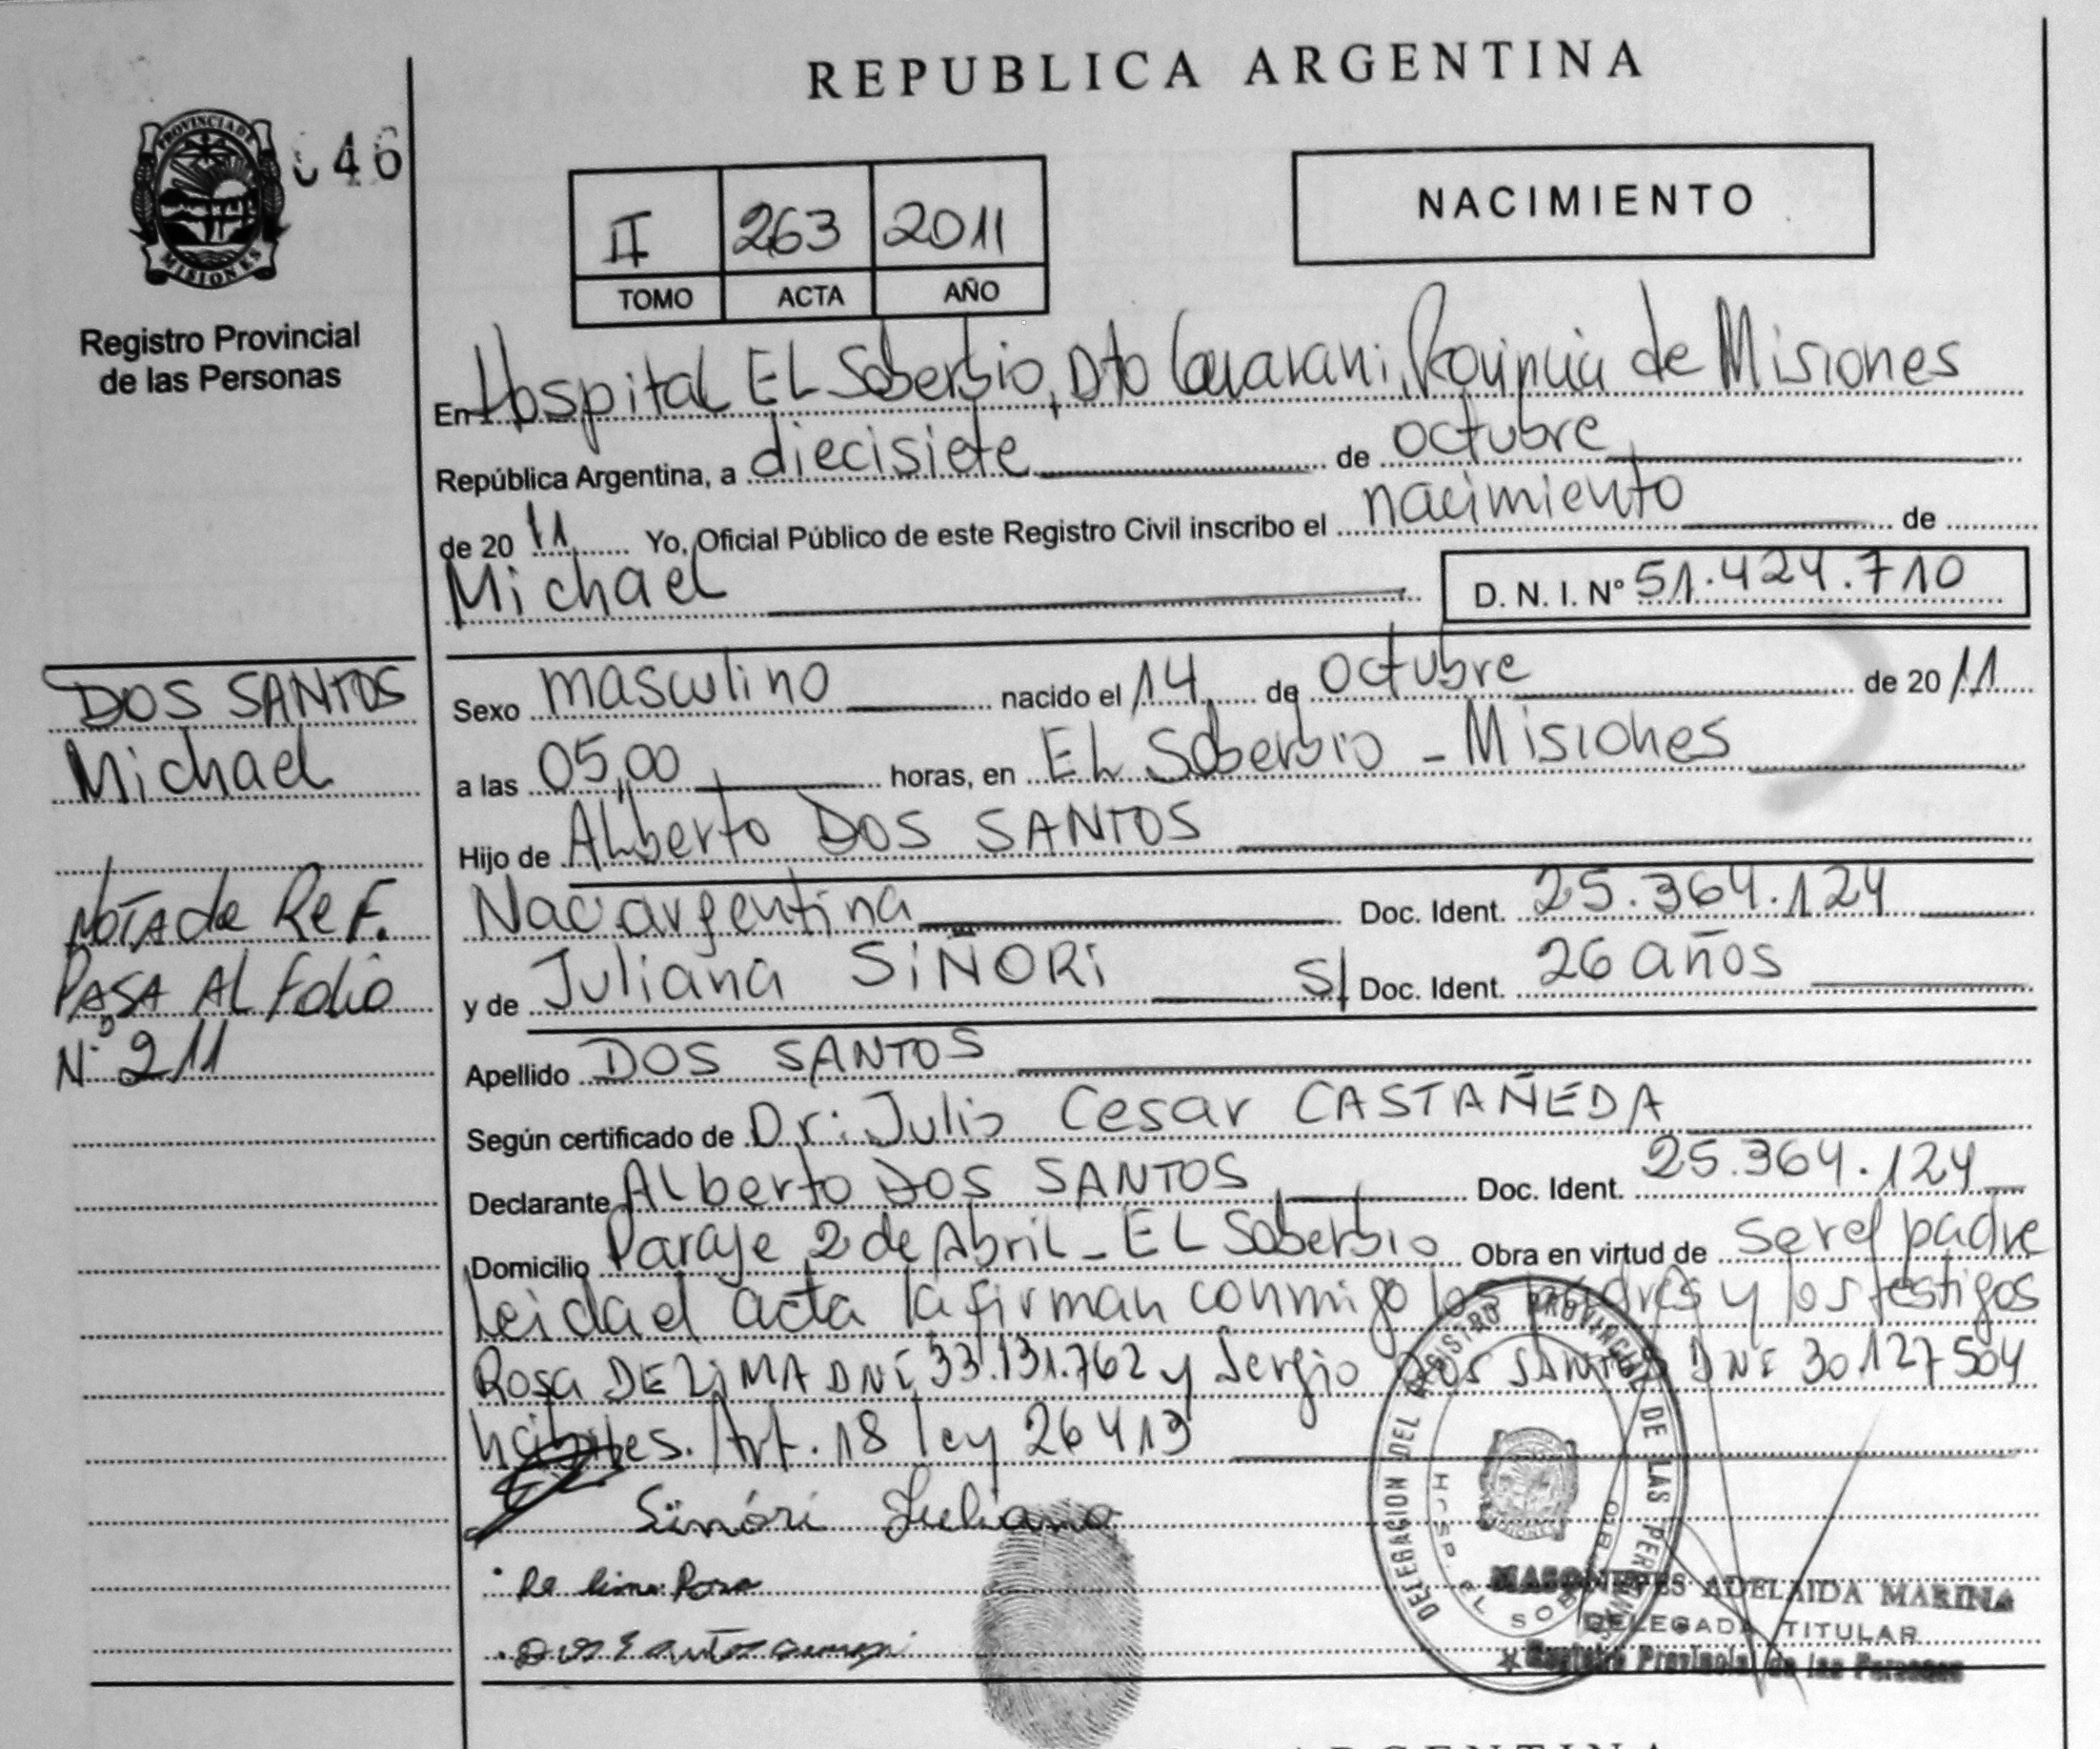 REPUBLICA ARGENTINA
PROVINCIA DE
MISIONES
046
Registro Provincial
de las Personas
II 263 2011
TOMO ACTA AÑO
NACIMIENTO
En Hospital EL Soberbio, Dto Guarani, Provincia de Misiones
República Argentina, a diecisiete de octubre
de 20 11 Yo, Oficial Público de este Registro Civil inscribo el nacimiento de
Michael D. N. I. Nº 51.424.710
DOS SANTOS
Michael
NOTA de Ref.
PASA AL Folio
Nº 211
Sexo masculino nacido el 14 de octubre de 20 11
a las 05,00 horas, en EL Soberbio - Misiones
Hijo de Alberto DOS SANTOS
Nac argentina Doc. Ident. 25.364.124
y de Juliana SIÑORI S/ Doc. Ident. 26 años
Apellido DOS SANTOS
Según certificado de Dr: Julio Cesar CASTAÑEDA
Declarante ALberto DOS SANTOS Doc. Ident. 25.364.124
Domicilio Paraje 2 de Abril - EL Soberbio Obra en virtud de ser el padre
Leida el acta la firman conmigo los padres y los testigos
Rosa DE LIMA DNI 33.131.762 y Sergio DOS SANTOS DNI 30.127504
habiles. Art. 18 ley 26413
Siñori Juliana
De lima Rosa
DELEGACION DEL REGISTRO PROVINCIAL DE LAS PERSONAS
HOSP. EL SOBERBIO
ADELAIDA MARINA
DELEGADA TITULAR
Registro Provincial de las Personas
ARGENTINA